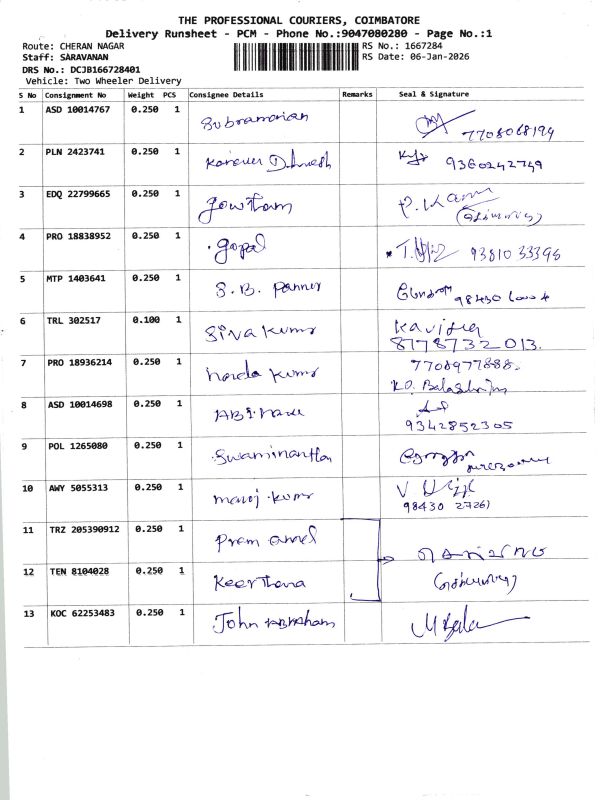 THE PROFESSIONAL COURIERS, COIMBATORE
Delivery Runsheet - PCM - Phone No.:9047080280 - Page No.:1
Route: CHERAN NAGAR RS No.: 1667284
Staff: SARAVANAN RS Date: 06-Jan-2026
DRS No.: DCJB166728401
Vehicle: Two Wheeler Delivery
S No Consignment No Weight PCS Consignee Details Remarks Seal & Signature
1 ASD 10014767 0.250 1 Subramanian 7708068194
2 PLN 2423741 0.250 1 9360242749
3 EDQ 22799665 0.250 1 Gowtham P.
4 PRO 18838952 0.250 1 Gopal 93810 33395
5 MTP 1403641 0.250 1 S. B. 98430
6 TRL 302517 0.100 1 Siva kumar Kavitha
8778732013.
7 PRO 18936214 0.250 1 kumar 7708977888.
8 ASD 10014698 0.250 1
9342852305
9 POL 1265080 0.250 1
10 AWY 5055313 0.250 1 manoj kumar V
98430
11 TRZ 205390912 0.250 1 Prem
12 TEN 8104028 0.250 1 Keerthana
13 KOC 62253483 0.250 1 John ABRAham M Bala